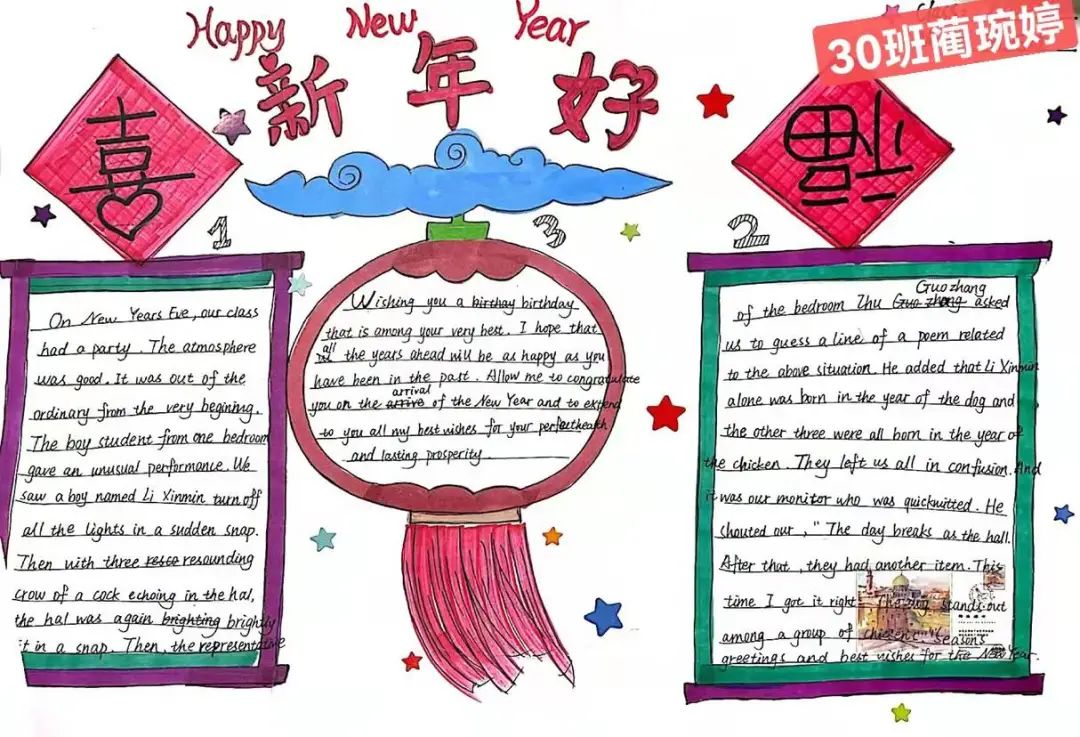 Happy New Year
30班蔺琬婷
新年好
喜
福
1
On New Years Eve, our class
had a party. The atmosphere
was good. It was out of the
ordinary from the very begining.
The boy student from one bedroom
gave an unusual performance. We
saw a boy named Li Xinmin turn off
all the lights in a sudden snap.
Then with three resco resounding
crow of a cock echoing in the hal,
the hal was again brighting brightly
it in a snap. Then, the representative
2
Guozhang
of the bedroom Zhu Guo zhang asked
us to guess a line of a poem related
to the above situation. He added that Li Xinmin
alone was born in the year of the dog and
the other three were all born in the year of
the chicken. They left us all in confusion. And
it was our monitor who was quickwitted. He
shouted our, " The day breaks as the hall.
After that, they had another item. This
time I got it right. The dog stands out
among a group of seasons
greetings and best wishes for the New Year.
3
Wishing you a birthay birthday
that is among your very best. I hope that
all
the years ahead will be as happy as you
have been in the past. Allow me to congratulate
arrival
you on the arrive of the New Year and to extend
to you all my best wishes for your perfect health
and lasting prosperity.